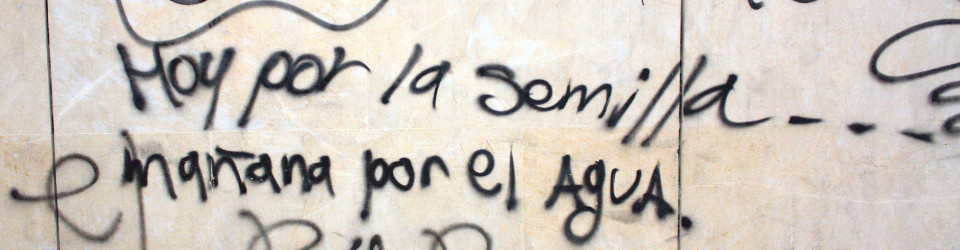 Hoy por la semilla----
mañana por el AguA.